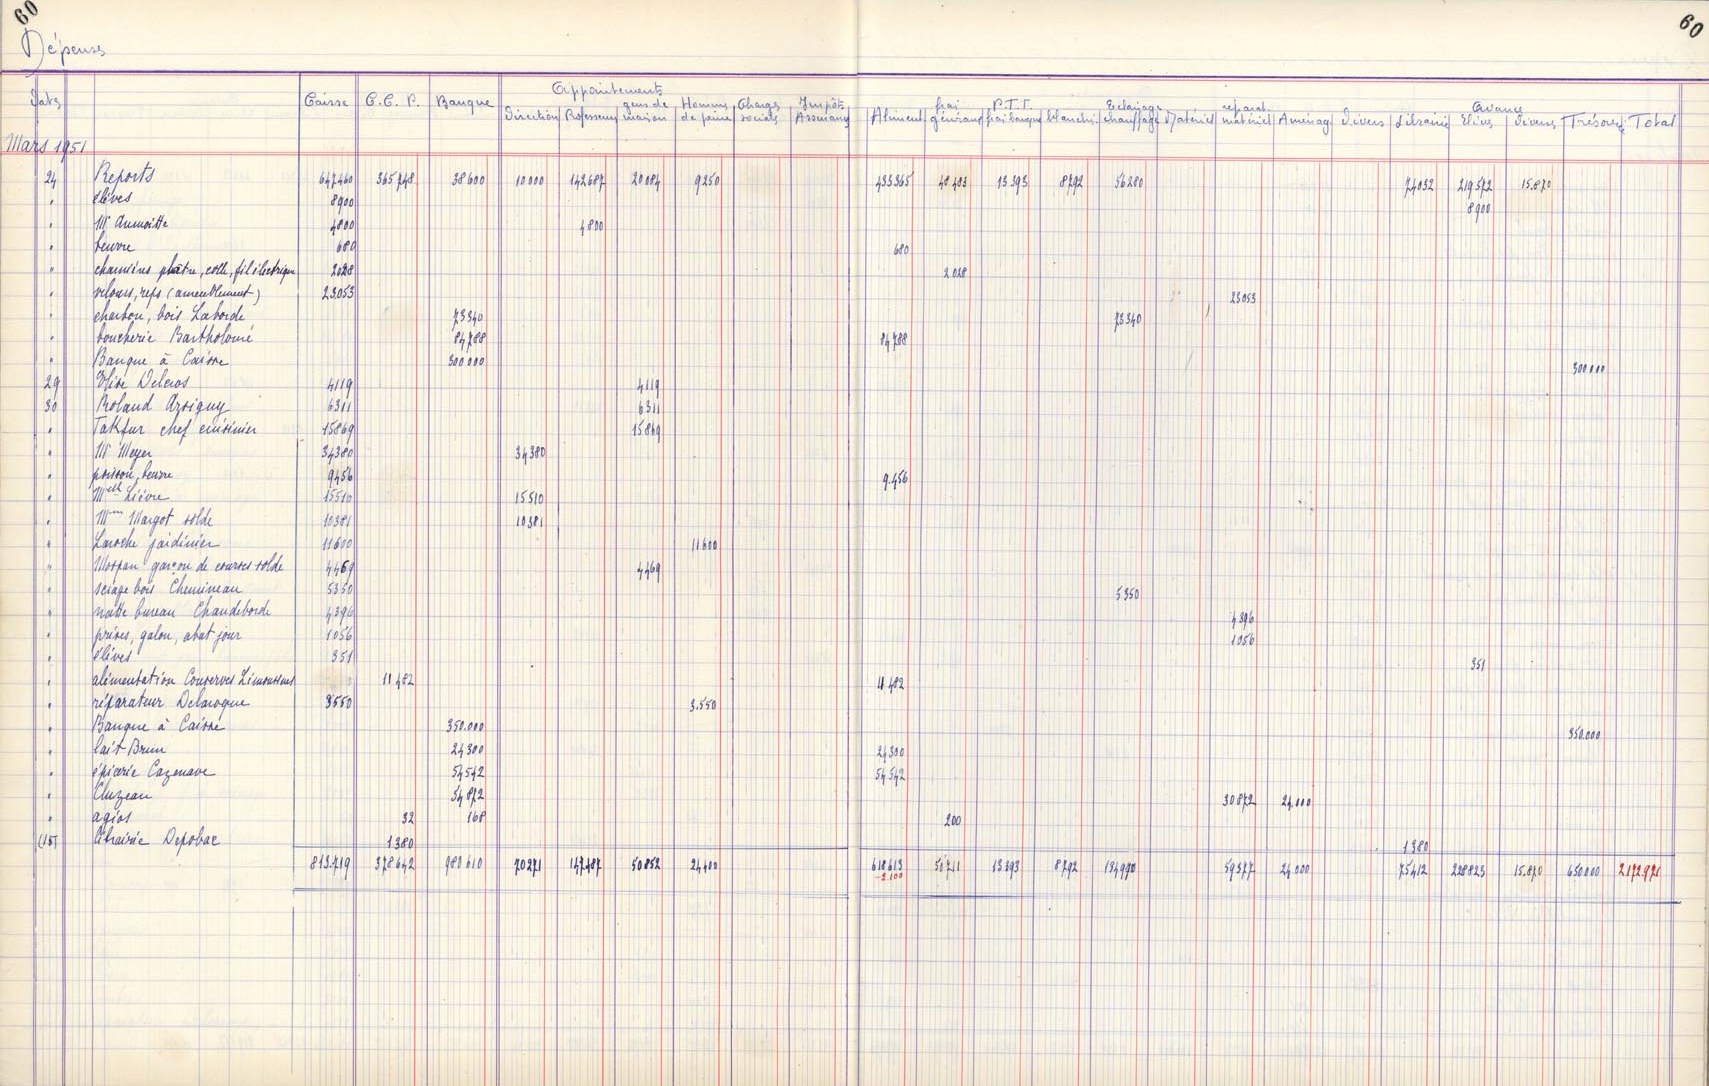 60
60
Dépenses
Appartements
Dates Caisse C.C.P. Banque Direction Professeurs gens de maison Hommes de peine Charges sociales Impôts Assurances Aliment. frais généraux P.T.T. frais banque blanchi. Eclairage chauffage Matériel réparat. matériel Aménag. Divers Librairie Avance Elèves Divers Trésorerie Total
Mars 1951
24 Reports 647460 365748 38600 10000 142687 20084 9250 433365 48483 13393 8792 56280 74032 219572 15.870
" élèves 8900 8900
" Mr Aumoitte 4800 4800
" beurre 680 680
" charnières plâtre, colle, fil électrique 2028 2028
" velours, reps (ameublement) 23.053 23053
" charbon, bois Laborde 73340 73340
" boucherie Bartholomé 84788 84788
" Banque à Caisse 300 000 300 000
29 Elise Delcros 4119 4119
30 Roland Arsiguy 6311 6311
" Takfur chef cuisinier 15869 15869
" Mr Meyer 34380 34380
" poisson, beurre 9456 9.456
" Melle Lièvre 15510 15510
" Mme Margot solde 10381 10381
" Laroche jardinier 11600 11600
" Mospan garçon de courses solde 4469 4469
" sciage bois Chemineau 5350 5350
" natte bureau Chaudeborde 4396 4396
" prises, galon, abat jour 1056 1056
" élèves 351 351
" alimentation Conserves Limousines 11482 11482
" réparateur Delaroque 3550 3.550
" Banque à Caisse 350.000 350.000
" lait Brun 24300 24300
" épicerie Cazenave 54542 54542
" Cluzeau 54872 30872 24.000
" agios 32 168 200
(15) librairie Depobac 1380 1380
813.719 378642 980610 70271 147487 50852 24400 618613 50711 13393 8792 134990 59377 24.000 75412 228823 15.870 650000 2172971
-2.100